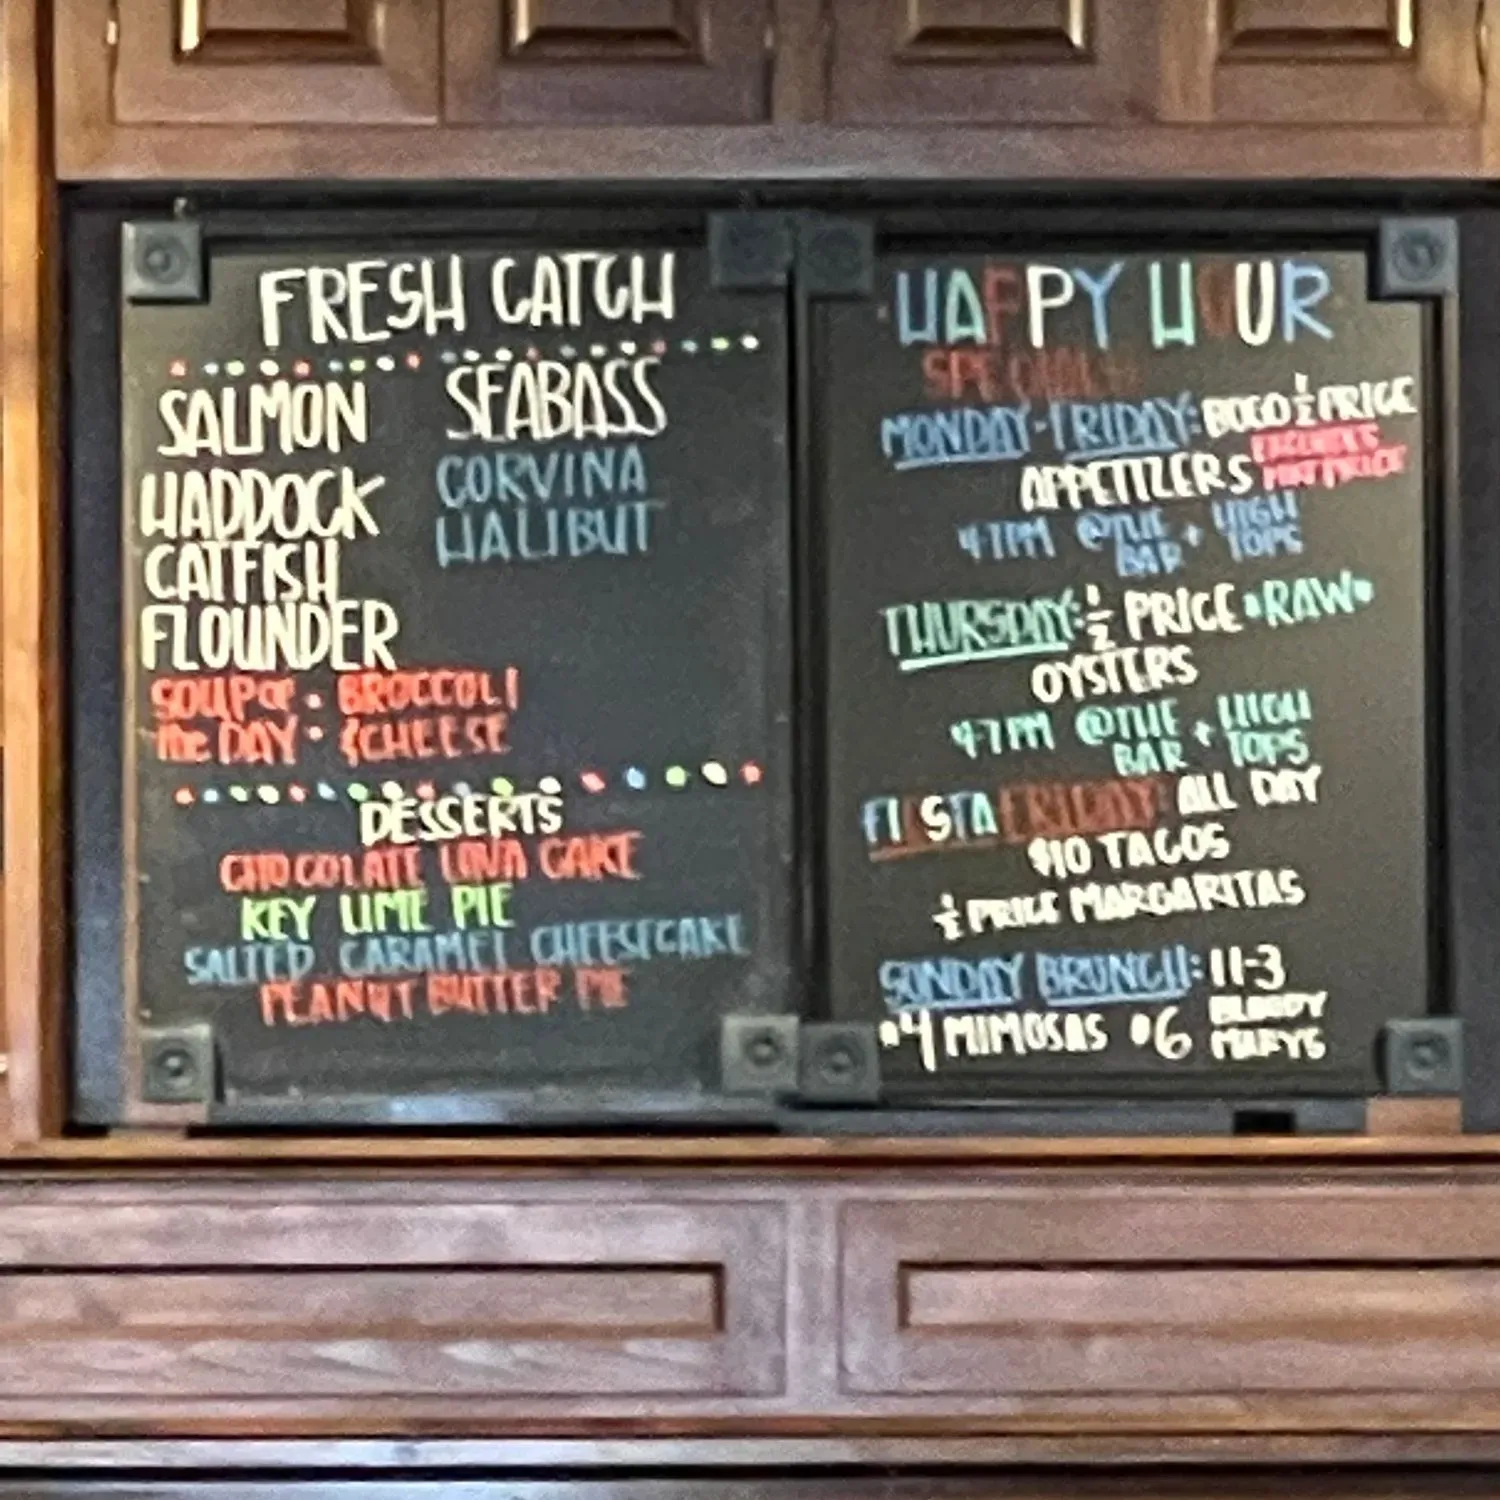 FRESH CATCH
SALMON
HADDOCK
CATFISH
FLOUNDER
SEABASS
CORVINA
HALIBUT
SOUP OF • BROCCOLI
THE DAY • & CHEESE
DESSERTS
CHOCOLATE LAVA CAKE
KEY LIME PIE
SALTED CARAMEL CHEESECAKE
PEANUT BUTTER PIE
HAPPY HOUR
SPECIALS
MONDAY-FRIDAY: BOGO ½ PRICE
APPETIZERS EXCLUDES
4-7PM @ THE BAR + HIGH TOPS
THURSDAY: ½ PRICE •RAW•
OYSTERS
4-7PM @ THE BAR + HIGH TOPS
FIESTA FRIDAY: ALL DAY
$10 TACOS
½ PRICE MARGARITAS
SUNDAY BRUNCH: 11-3
$4 MIMOSAS $6 BLOODY MARYS